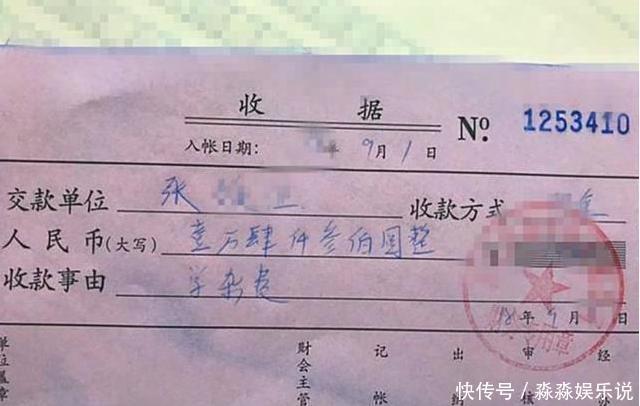 收 据
№ 1253410
入帐日期: 年 9 月 1 日
交款单位 张 收款方式
人民币(大写) 壹万肆仟叁佰圆整
收款事由 学杂费
18 年 9 月 日
财会主管 记帐 出纳 审核 经
单位盖章
快传号/淼淼娱乐说